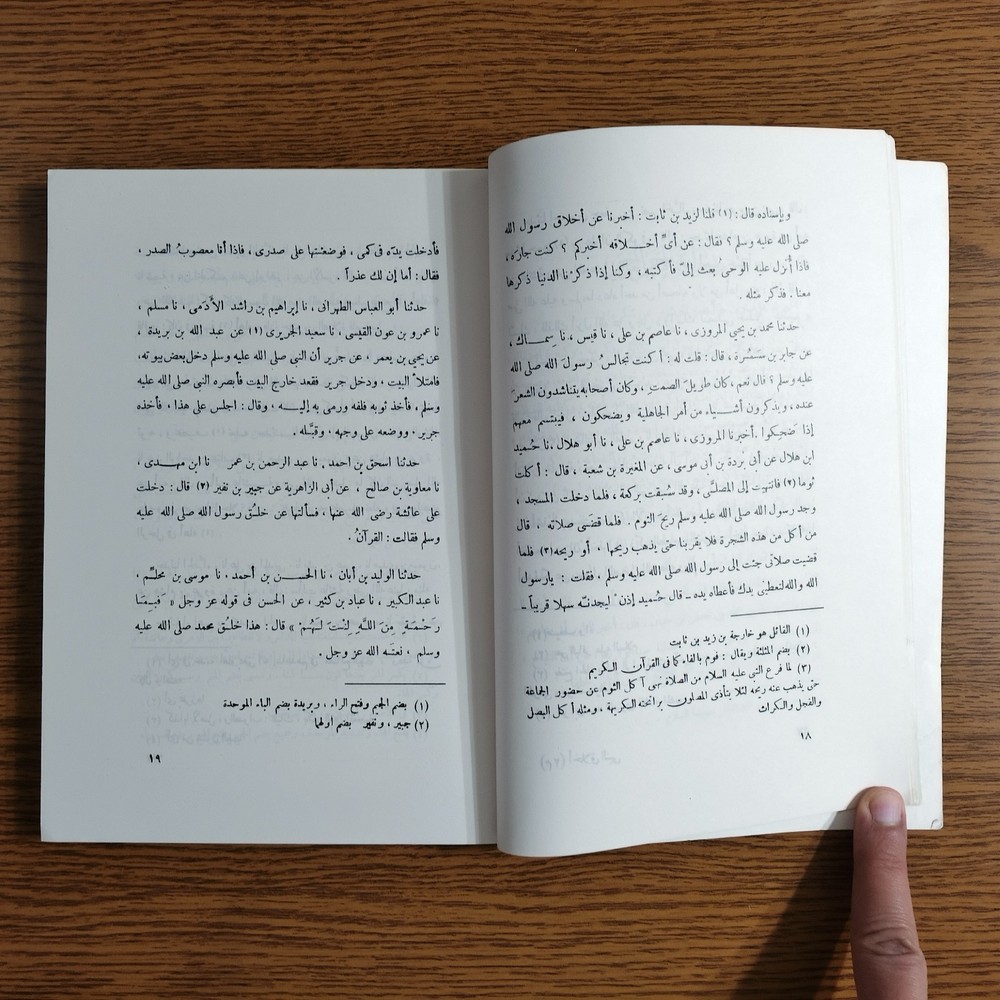 وبإسناده قال : (١) قلنا لزيد بن ثابت : أخبرنا عن أخلاق رسول الله
صلى الله عليه وسلم ؟ فقال : عن أىّ أخــلاقه أخبركم ؟ كنت جارَه ،
فاذا أُنزل عليه الوحىُ بعث إلىّ فأكتبه ، وكنا إذا ذكرْنا الدنيا ذكرها
معنا . فذكر مثله .
حدثنا محمد بن يحيى المروزى ، نا عاصم بن على ، نا قيس ، نا سِمــاك ،
عن جابر بن سَمُسرة ، قال : قلت له : أكنت تجالسُ رسولَ الله صلى الله
عليه وسلم ؟ قال نعم ، كان طويلَ الصمتِ ، وكان أصحابه يتناشدون الشعرَ
عنده ، ويذكرون أشــياء من أمر الجاهلية ويضحكون ، فيبتسم معهم
إذا ضَحِكوا . أخبرنا المروزى ، نا عاصم بن على ، نا أبو هلال ، نا حُميد
ابن هلال عن أبى بُردة بن أبى موسى ، عن المغيرة بن شعبة ، قال : أكلت
ثوما (٢) فانتهيت إلى المصلَّى ، وقد سُبقت بركعة ، فلما دخلت المسجد ،
وجد رسول الله صلى الله عليه وسلم ريحَ الثوم . فلما قضَى صلاته ، قال
من أكل من هذه الشجرة فلا يقربنا حتى يذهب ريحها ، أو ريحه (٣) فلما
قضيت صلاتى جئت إلى رسول الله صلى الله عليه وسلم ، فقلت : يا رسول
الله والله لتعطينى يدك فأعطاه يده ــ قال حُميد إذن ْ ليجدنَّه سهلا قريباً ــ
(١) القائل هو خارجة بن زيد بن ثابت
(٢) بضم المثلثة ويقال : فوم بالفاء كما فى القرآن الـكريم
(٣) لما فرغ النبى عليه السلام من الصلاة نهى آكل الثوم عن حضور الجماعة
حتى يذهب عنه ريحه لئلا يتأذى المصلون برائحته الـكريهة ، ومثله أكل البصل
والفجل والـكراث
١٨
فأدخلت يدَه فى كمى ، فوضعتها على صدرى ، فاذا أنا معصوبُ الصدر ،
فقال : أما إن لك عذراً .
حدثنا أبو العباس الطهرانى ، نا إبراهيم بن راشد الأَدَمى ، نا مسلم ،
نا عمرو بن عون القيسى ، نا سعيد الجريرى (١) عن عبد الله بن بريدة ،
عن يحيى بن يعمر ، عن جرير أن النبى صلى الله عليه وسلم دخل بعض بيوته ،
فامتلأ البيت ، ودخل جرير فقعد خارج البيت فأبصره النبى صلى الله عليه
وسلم ، فأخذ ثوبه فلفه ورمى به إليــه ، وقال : اجلس على هذا ، فأخذه
جرير ، ووضعه على وجهه ، وقبَّله .
حدثنا اسحق بن احمد ، نا عبد الرحمن بن عمر نا ابن مهــدى ،
نا معاوية بن صالح ، عن أبى الزاهرية عن جبير بن نفير (٢) قال : دخلت
على عائشة رضى الله عنها ، فسألتها عن خلُق رسول الله صلى الله عليه
وسلم فقالت : القرآنُ .
حدثنا الوليد بن أبان ، نا الحســن بن أحمد ، نا موسى بن محلَّم ،
نا عبد الكبير ، نا عباد بن كثير ، عن الحسن فى قوله عز وجل « فَبِمَا
رَحْمَةٍ مِنَ اللهِ لِنْتَ لَهُمْ » قال : هذا خلُق محمد صلى الله عليه
وسلم ، نعتَه الله عز وجل .
(١) بضم الجيم وفتح الراء ، وبريدة بضم الباء الموحدة
(٢) جبير ، ونفير بضم اولهما
١٩